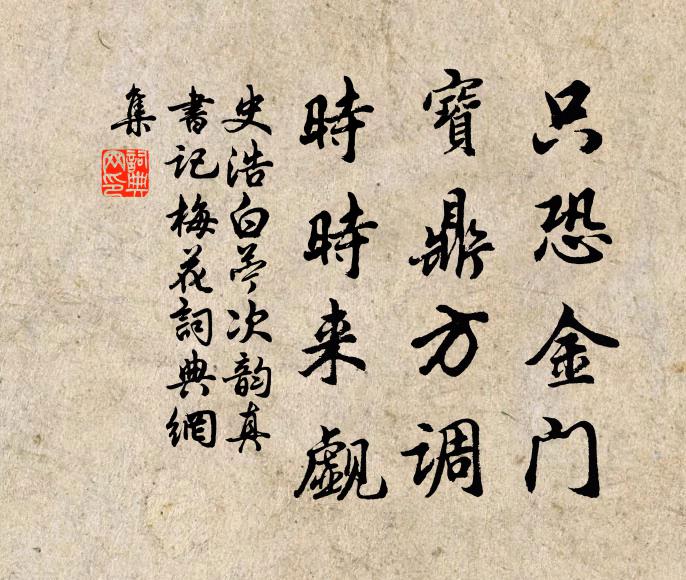 只恐金门
寳鼎方调
時時来觑
史浩白苎次韵真
書记梅花詞典網
集
詞典網印